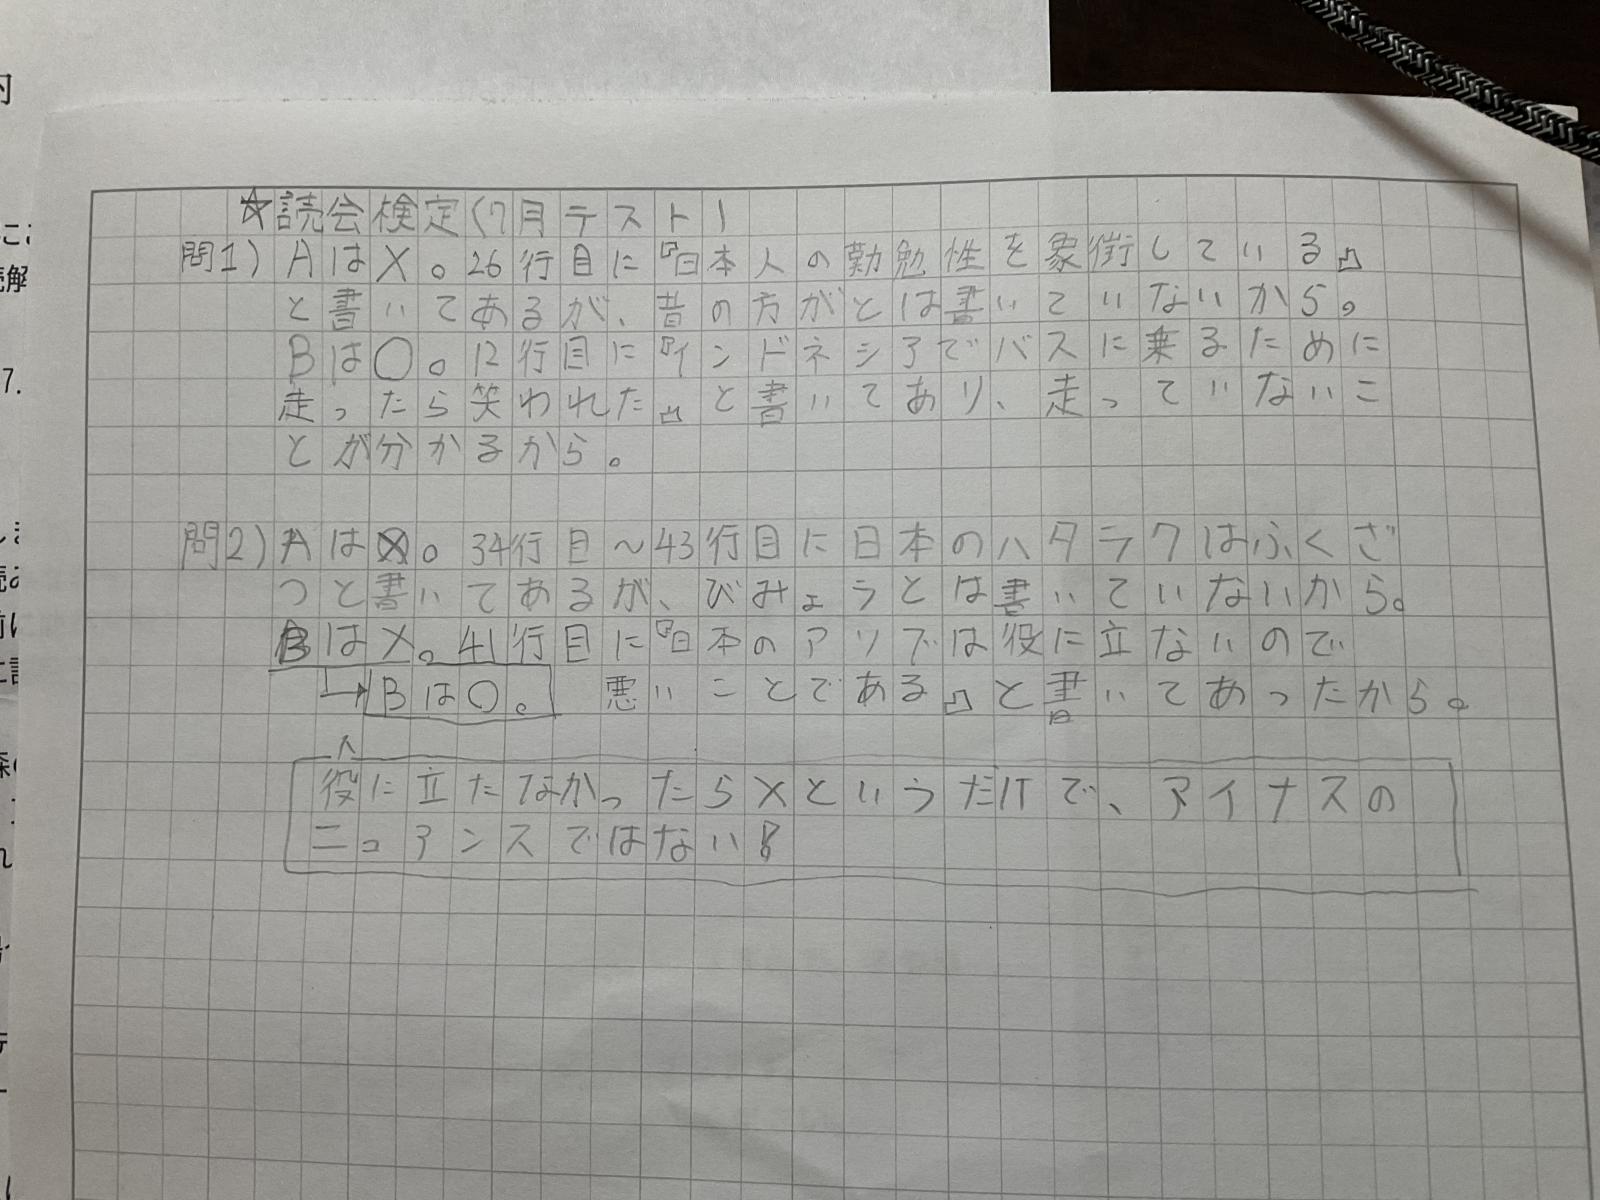 ☆読会検定(7月テスト)
問1) AはX。26行目に『日本人の勤勉性を象徴している』
と書いてあるが、昔の方がとは書いていないから。
Bは〇。12行目に『インドネシアでバスに乗るために
走ったら笑われた』と書いてあり、走っていないこ
とが分かるから。
問2) AはX。34行目〜43行目に日本のハタラクはふくざ
つと書いてあるが、びみょうとは書いていないから。
BはX。41行目に『日本のアソブは役に立ないので
→Bは〇。 悪いことである』と書いてあったから。
役に立たなかったらXというだけで、マイナスの
ニュアンスではない!